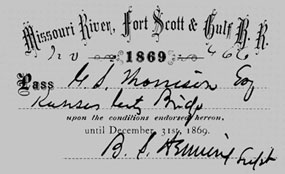 Missouri River, Fort Scott & Gulf R. R.
No 1869 466
Pass G. S. Morrison Esq
Kansas City Bridge
upon the conditions endorsed hereon,
until December, 31st, 1869.
B. S. Henning Supt